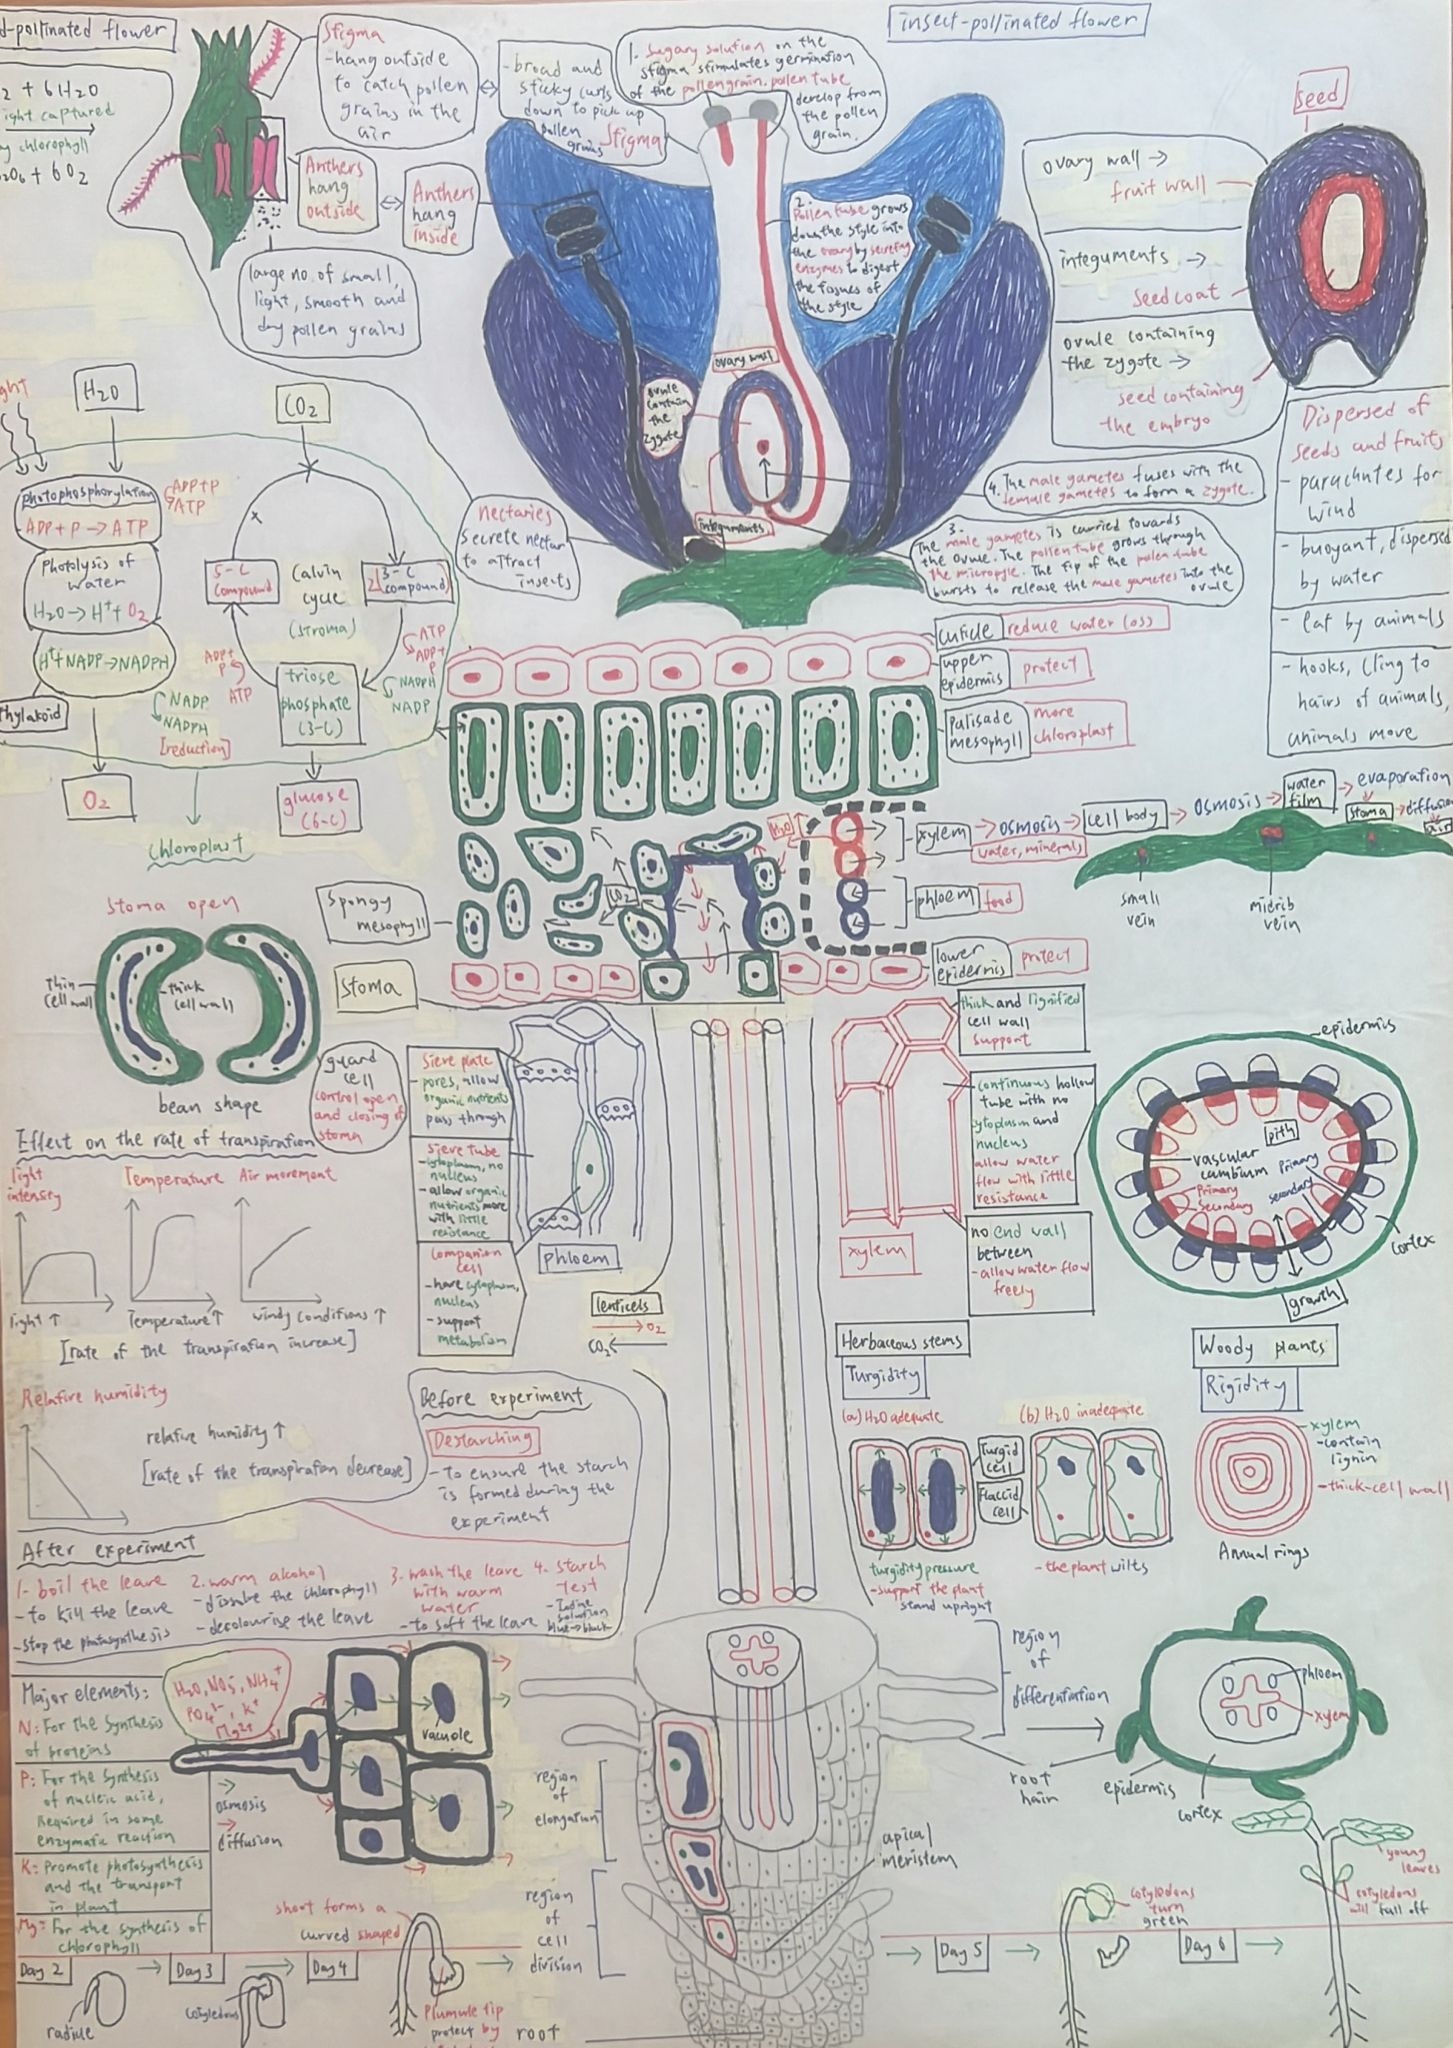 d-pollinated flower
insect-pollinated flower
+ 6H2O
light captured
by chlorophyll
+ 6O2
Stigma
-hang outside
to catch pollen
grains in the
air
-broad and
sticky curls
down to pick up
pollen
grains
Stigma
1. Sugary solution on the
stigma stimulates germination
of the pollen grain. pollen tube
develop from
the pollen
grain.
Anthers
hang
outside
Anthers
hang
inside
large no. of small,
light, smooth and
dry pollen grains
2.
Pollen tube grows
down the style into
the ovary by secreting
enzymes to digest
the tissues of
the style
ovary wall
ovule
contain
the
zygote
integuments
nectaries
secrete nectar
to attract
insects
4. The male gametes fuses with the
female gametes to form a zygote.
3.
The male gametes is carried towards
the ovule. The pollen tube grows through
the micropyle. The tip of the pollen tube
bursts to release the male gametes into the
ovule
seed
ovary wall →
fruit wall
integuments →
seed coat
ovule containing
the zygote →
seed containing
the embryo
Dispersed of
seeds and fruits
- parachutes for
wind
- buoyant, dispersed
by water
- eat by animals
- hooks, cling to
hairs of animals,
animals move
ght
H2O
CO2
photophosphorylation
ADP+P → ATP
ADP+P
ATP
Photolysis of
water
H2O → H+ + O2
H+ + NADP → NADPH
thylakoid
NADP
NADPH
[reduction]
O2
5-C
compound
Calvin
cycle
(stroma)
2 [3-C
compound]
ADP+
P
ATP
ATP
ADP+
P
NADPH
NADP
triose
phosphate
(3-C)
glucose
(6-C)
chloroplast
cuticle
reduce water loss
upper
epidermis
protect
palisade
mesophyll
more
chloroplast
H2O
CO2
xylem → osmosis → cell body → osmosis → water film → evaporation
water, minerals
stoma → diffusion
air
phloem
food
small
vein
midrib
vein
Spongy
mesophyll
Stoma
lower
epidermis
protect
Stoma open
thin
cell wall
thick
cell wall
bean shape
guard
cell
control open
and closing of
stoma
Sieve plate
- pores, allow
organic nutrients
pass through
sieve tube
- cytoplasm, no
nucleus
- allow organic
nutrients move
with little
resistance
companion
cell
- have cytoplasm,
nucleus
- support
metabolism
phloem
lenticels
→ O2
CO2 ←
thick and lignified
cell wall
support
continuous hollow
tube with no
cytoplasm and
nucleus
allow water
flow with little
resistance
no end wall
between
- allow water flow
freely
xylem
epidermis
pith
vascular
cambium
Primary
Secondary
Primary
Secondary
cortex
growth
Effect on the rate of transpiration
light
intensity
Temperature
Air movement
light ↑
Temperature ↑
windy conditions ↑
[rate of the transpiration increase]
Relative humidity
relative humidity ↑
[rate of the transpiration decrease]
Before experiment
Destarching
- To ensure the starch
is formed during the
experiment
Herbaceous stems
Turgidity
(a) H2O adequate
(b) H2O inadequate
Turgid
cell
Flaccid
cell
turgidity pressure
- support the plant
stand upright
- the plant wilts
Woody plants
Rigidity
xylem
- contain
lignin
- thick-cell wall
Annual rings
After experiment
1- boil the leave
- to kill the leave
- stop the photosynthesis
2. warm alcohol
- dissolve the chlorophyll
- decolourise the leave
3. wash the leave
with warm
water
- to soft the leave
4. starch
test
- Iodine
solution
blue → black
Major elements:
N: For the synthesis
of proteins
P: For the synthesis
of nucleic acid,
Required in some
enzymatic reaction
K: Promote photosynthesis
and the transport
in plant
Mg: For the synthesis of
chlorophyll
H2O, NO3-, NH4+
PO4 3-, K+
Mg2+
vacuole
→
osmosis
→
diffusion
region
of
differentiation
region
of
elongation
region
of
cell
division
apical
meristem
root
hair
epidermis
cortex
phloem
xylem
root
Day 2
→
Day 3
→
Day 4
→
radicle
cotyledons
shoot forms a
curved shaped
Plumule tip
protect by
→
Day 5
→
cotyledons
turn
green
Day 6
→
young
leaves
cotyledons
will fall off